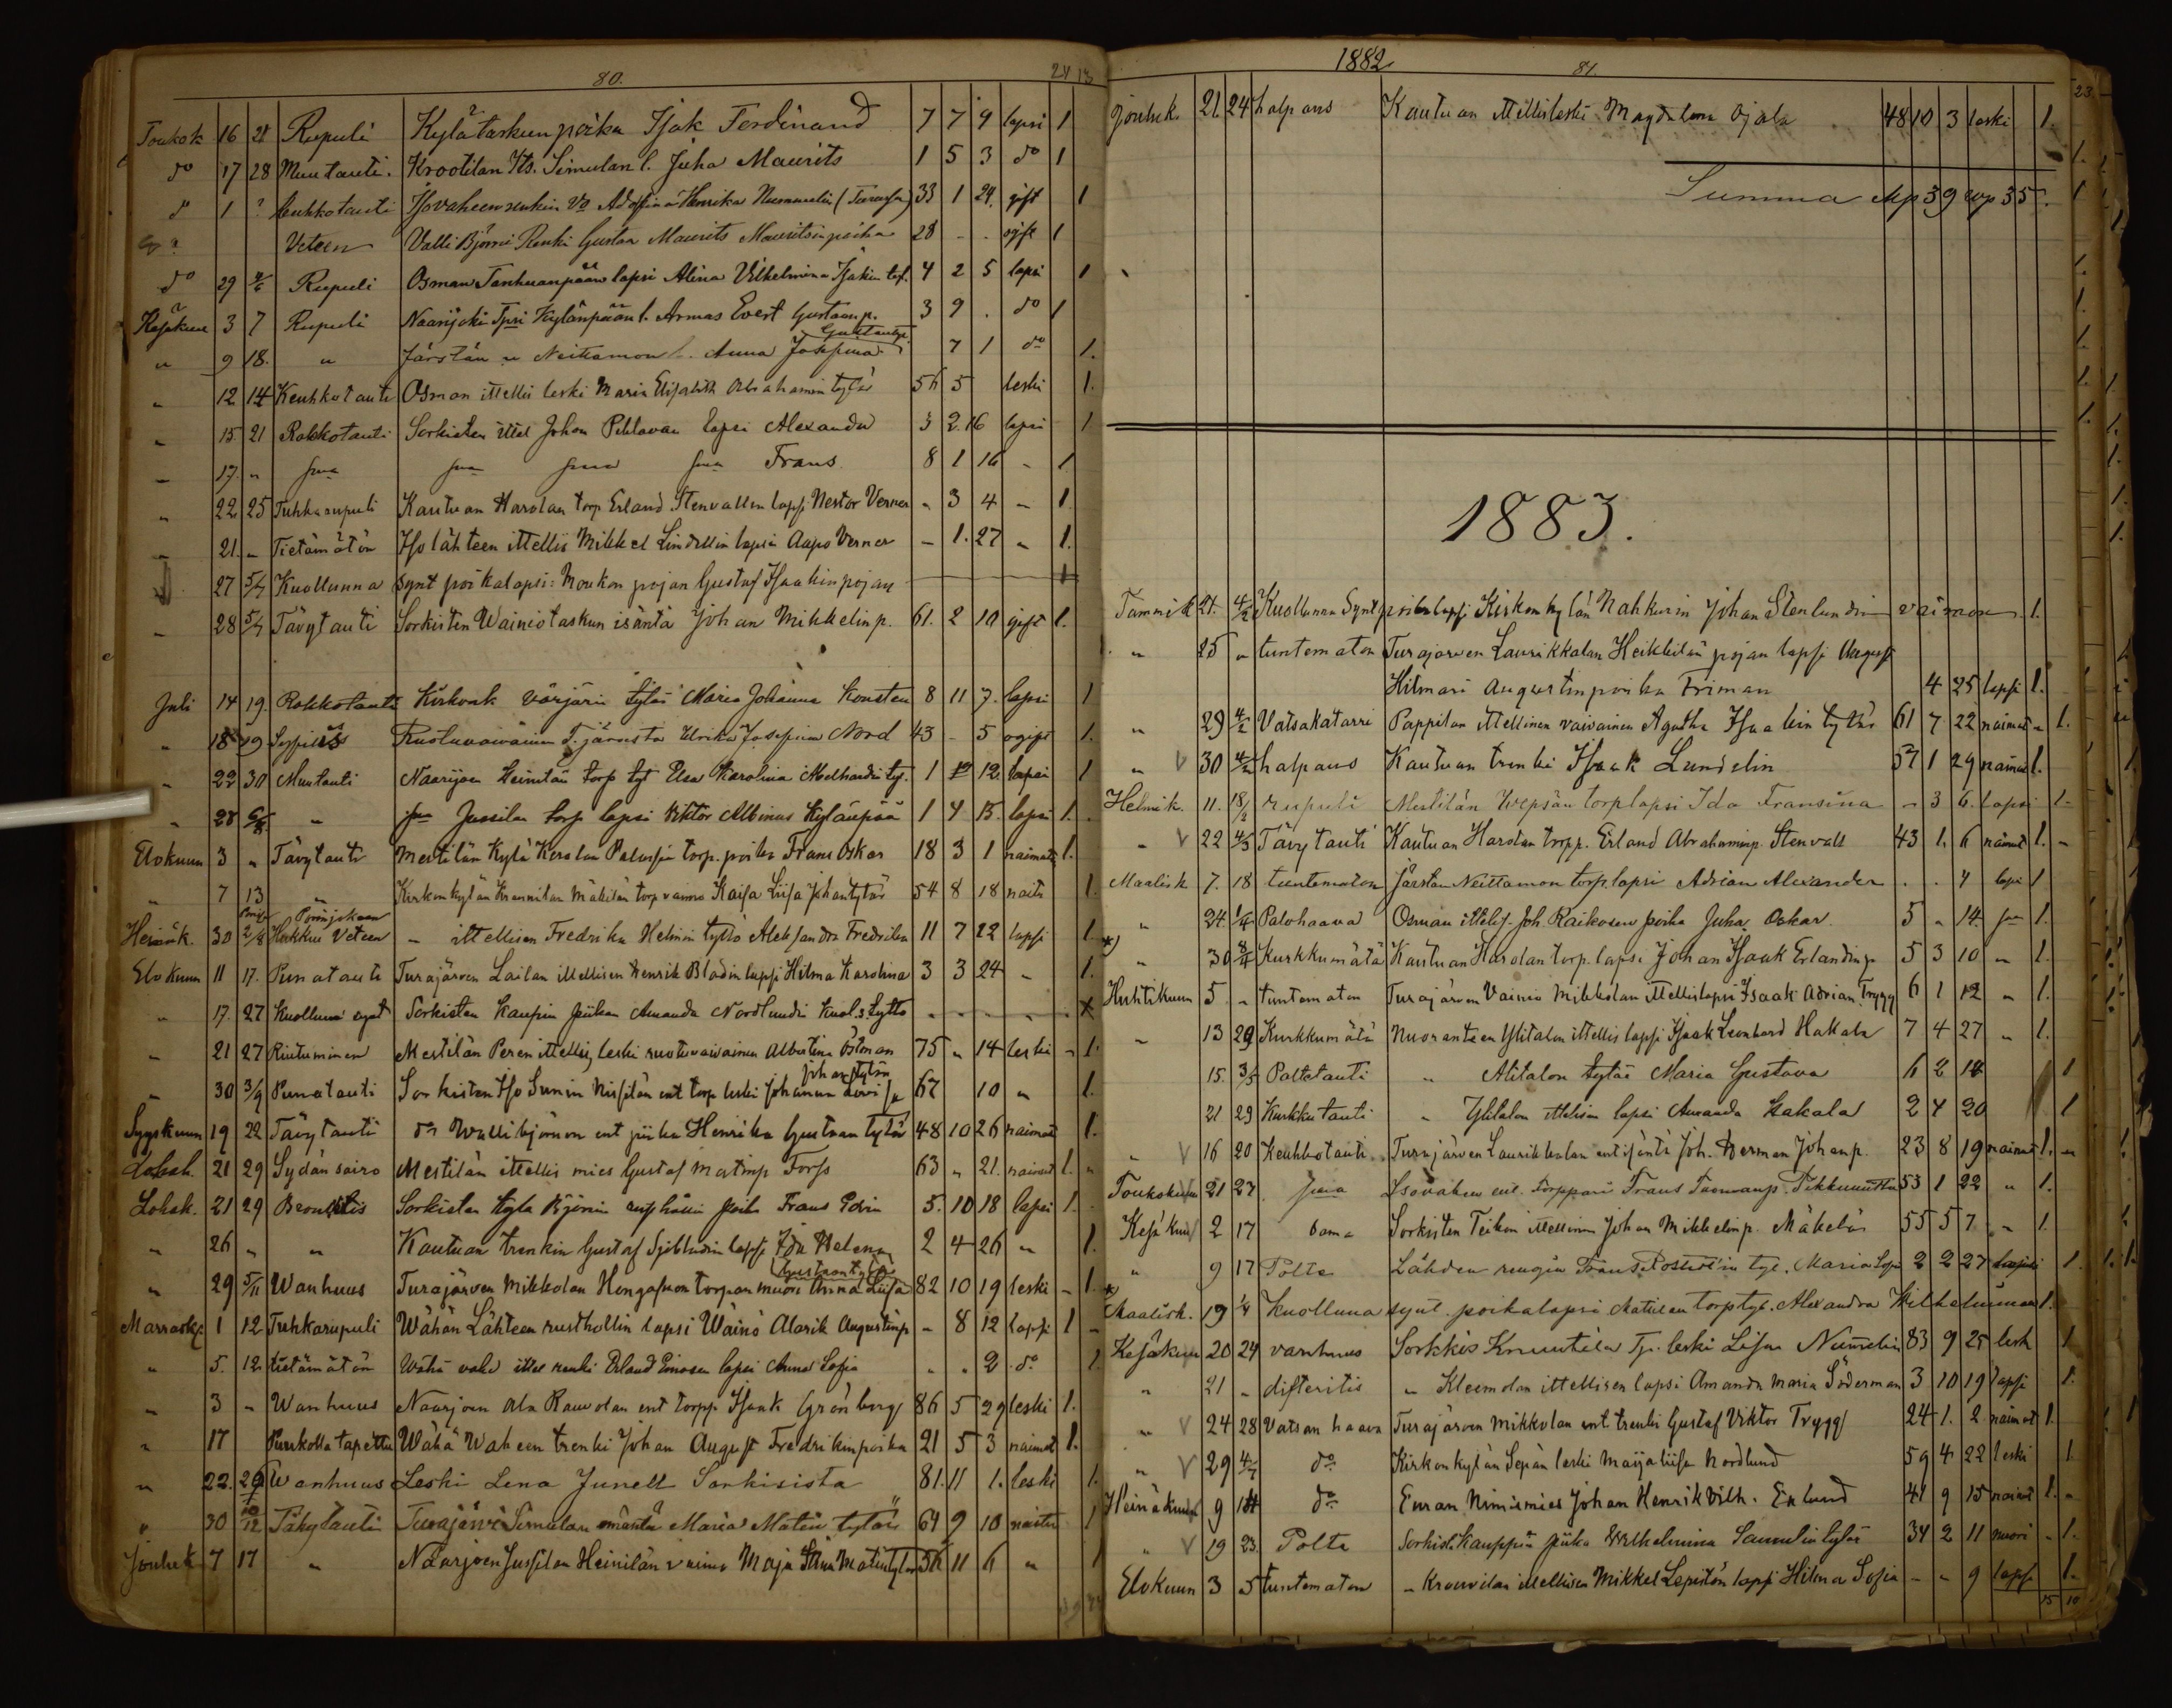 80.
24 13
Toukok 16 28 Rupuli Kylätaskun poika Isak Ferdinand 7 7 9 lapsi 1
do 17 28 Muutauti. Krootilan Its. Simulan l. Juha Maurits 1 5 3 do 1
do 1 ? keuhkotauti Isovaheen renkin Vo Adolfina Henrika Nummelin 33 1 24. gift 1
Veteen Valli Björni Renki Gustaa Maurits Mauritsinpoika 28 - - ogift 1
do 29 2/6 Rupuli Osman Tanhuanpään lapsi Alina Vilhelmina Isakin tyt. 4 2 5 lapsi 1
Kesäkuu 3 7 Rupuli Naarijoki Tpri Kylänpään l. Armas Evert Gustaan p. 3 9 . do 1
" 9 18. " Järstän " Neittamon l. Anna Josefina Gustantyt. 7 1 do 1.
" 12 14 Keuhkotauti Osman ittellis leski Maria Elisabeth Abrahamin tytär 56 5 leski 1.
" 15 21 Rokkotauti Sorkisten ittel Johan Pehlavan lapsi Alexander 3 2. 16 lapsi 1
" 17. " sama sama sama sama Frans 8 1 16 " 1
" 22 25 Tuhkarupuli Kautuan Harolan torp Erland Stenvallin lapsi Nestor Verner " 3 4 - 1
" 21. " Tietämätön Iso lähteen ittellis Mikkel Lindellin lapsi Aapo Verner - 1. 27 " 1.
27 5/7 Kuolluna synt poikalapsi: Noukon pojan Gustaf Isaakinpojan 1
" 28 5/7 Tävytauti Sorkisten Wainiotaskun isäntä Johan Mikkelin p. 61. 2 10 gift 1.
Juli 14 19 Rokkotauti Kirkonk värjärin tytär Maria Johanna Konsten 8 11 7. lapsi 1
" 18 19 Ruotuvaivainen T.järvesta Ulrika Josefina Nord 43 - 5 ogift 1.
" 22 30 Muutauti Naarijoen Heinilän torp tyt Elsa Karolina tyt. 1 10 12. lapsi 1
" 28 6/8. " sama Jussilan torp lapsi Viktor Albinus Kylänpää 1 4 15. lapsi 1.
Elokuun 3 " Tävytauti Mestilän Kylä Keralan torp. poika Frans Oskar 18 3 1 naimat. 1.
" 7 13 " Kirkonkylän Krannilan Mäkilän torp vaimo Kaisa Liisa Johantytär 54 8 18 naitu 1.
Heinäk. 30 2/8 Hukkui Veteen Porinjokeen - ittellisen Fredrika Helmin tyttö Aleksandra Fredrika 11 7 22 lapsi 1.
Elokuun 11 17. Punatauti Turajärven Lailan ittellisen Henrik Bladin lapsi Hilma Karolina 3 3 24 " 1.
" 17. 27 Kuolluna synt Sorkisten Kaupin piikan Amanda Nordlundin kuol. s. tyttö - - - - x
" 21 27 Riutuminen Mestilän Peren ittellis leski ruotuvaivainen Albertina Östman 75 " 14 leski - 1.
" 30 3/9 Punatauti Sorkisten Iso Sunin Nissilän ent torp leski Johanna Lovisa Johantytär 67 10 " 1.
Syyskuun 19 22 Tävytauti do Wallibjörnon ent piika Henrika Gustaan tytär 48 10 26 naimat. 1.
Lokak. 21 29 Sydän sairo Mestilän ittellis mies Gustaf Matinp Forss 63 " 21. naimat 1. "
Lokak. 21 29 Bronkitis Sorkisten Kylä Björnin poika Frans Edvin 5. 10 18 lapsi 1.
" 26 " " Kautuan trenkin Gustaf Sjöblindin lapsi Ida Helena Gustaantytär 2 4 26 " 1.
" 29 5/11 Wanhuus Turajärven Mikkolan Hongasuon torpan muori Anna Liisa 82 10 19 leski - 1.
Marrask. 1 12 Tuhkarupuli Wähän Lähteen rusthollin lapsi Wäinö Alarik Augustinp - 8 12 lapsi 1 -
" 5. 12. tietämätön Wähä vahe ittel renki Erland Einosen lapsi Anna Sofia " " 2 do 1.
" 3 " Wanhuus Naarjoen Ala Rauvolan ent torpp Isaak Grönberg 86 5 29 leski 1.
" 17 Puukolla tapettu Wähä Waheen trenki Johan August Fredrikinpoika 21 5 3 naimat 1.
" 22. 29 Wanhuus Leski Lena Junell Sorkisista 81. 11 1. leski 1.
" 30 10/12 Täkytauti Turajärvi Simulan emäntä Maria Matin tytär 64 9 10 naitu 1
Jouluk 7 17 " Naarjoen Jussilan Heinilän vaimo Maja Stina Matintytär 56 11 6 " 1
1882
81.
Jouluk. 21. 24 halpaus Kautuan ittellisleski Magdalena Ojala 48 10 3 leski 1.
Summa Mp 39 Wp 35.
1883.
Tammik 21. 4/2 Kuolluna Synt. poikalapsi Kirkonkylän Nahkurin Johan Stenlundin vaimon 1.
" 25 " tuntematon Turajärven Laurikkalan Heikkilän pojan lapsi August
Hilmari Augustinpoika Friman 4 25 lapsi 1.
" 29 4/2 Vatsakatarri Pappilan ittellinen vaivainen Agatha Isaakin tytär 61 7 22 naimat " 1.
" V 30 4/2 halpaus Kautuan trenki Isaak Lundelin 57 1 29 naimat 1.
Helmik. 11. 18/2 rupuli Mestilän Wepsän torplapsi Ida Fransina - 3 6. lapsi 1-
" V 22 4/3 Tävytauti Kautuan Harolan torpp. Erland Abrahaminp. Stenvall 43 1. 6 naimat 1. -
Maalisk 7. 18 tuntematon Järstän Neittamon torp. lapsi Adrian Alexander . . 4 lapsi 1
" 24. 1/4 Palohaava Osman ittellis. Joh. Raikosen poika Juha Oskar. 5 " 14. sa 1.
*) " 30 8/4 Kurkkumätä Kautuan Harolan torp. lapsi Johan Isaak Erlandinp 5 3 10 " 1.
Huhtikuun 5 " tuntematon Turajärven Vainio Mikkolan ittellislapsi Isaak Adrian Trygg 6 1 12 " 1.
" 13 29 Kurkkumätä Nuoranteen Ylitalon ittellis lapsi Isaak Leonhard Hakala 7 4 27 " 1.
15. 3/5 Poltetauti " Alitalon tytär Maria Gustava 6 2 18 1
21 29 Kurkkutauti " Ylitalon ittelisen lapsi Amanda Hakala 2 4 20 1
" V 16 20 Keuhkotauti Turajärven Laurikkalan ent isäntä Joh. Herman Johanp. 23 8 19 naimat 1. "
Toukokuun 21 27 sama Isovahen ent. Torppari Frans 53 1 22 " 1.
Kesäkuu 2 17 sama Sorkisten Teikon ittellinen Johan Mikkelinp. Mäkelä 55 5 7 " 1
" 9 17 Polte Lähden rengin Frans tyt. Maria Sofia 2 2 27 lapsi 1.
*) Maalisk. 19 1/4 Kuolluna synt. poikalapsi torp tyt. Alexandra Wilhelmiinan 1.
Kesäkuun 20 24 vanhuus Sorkkis Knuutila Tp. leski Lisa Numelin 83 9 25 lesk 1
" 21 " difteritis " Kleemolan ittellisen lapsi Amanda Maria Söderman 3 10 19 lapsi 1.
" V 24 28 Vatsan haava Turajärven Mikkolan ent. trenki Gustaf Viktor Trygg 24 1. 2. naimat 1.
" V 29 4/7 do Kirkonkylän Sepän leski Maijaliisa Nordlund 59 4 22 leski 1.
Heinäkuun 9 do Euran Nimismies Johan Henrik Vilh. Enlund 41 9 15 naimat 1. "
" V 19 23. Polte Sorkist. Kauppin piika Wilhelmina Samulintytär 34 2 11 nuori - 1.
Elokuun 3 5 tuntematon " Krouvilan ittellisen Mikkel Lepistön lapsi Hilma Sofia - " 9 lapsi 1.
15 10
23